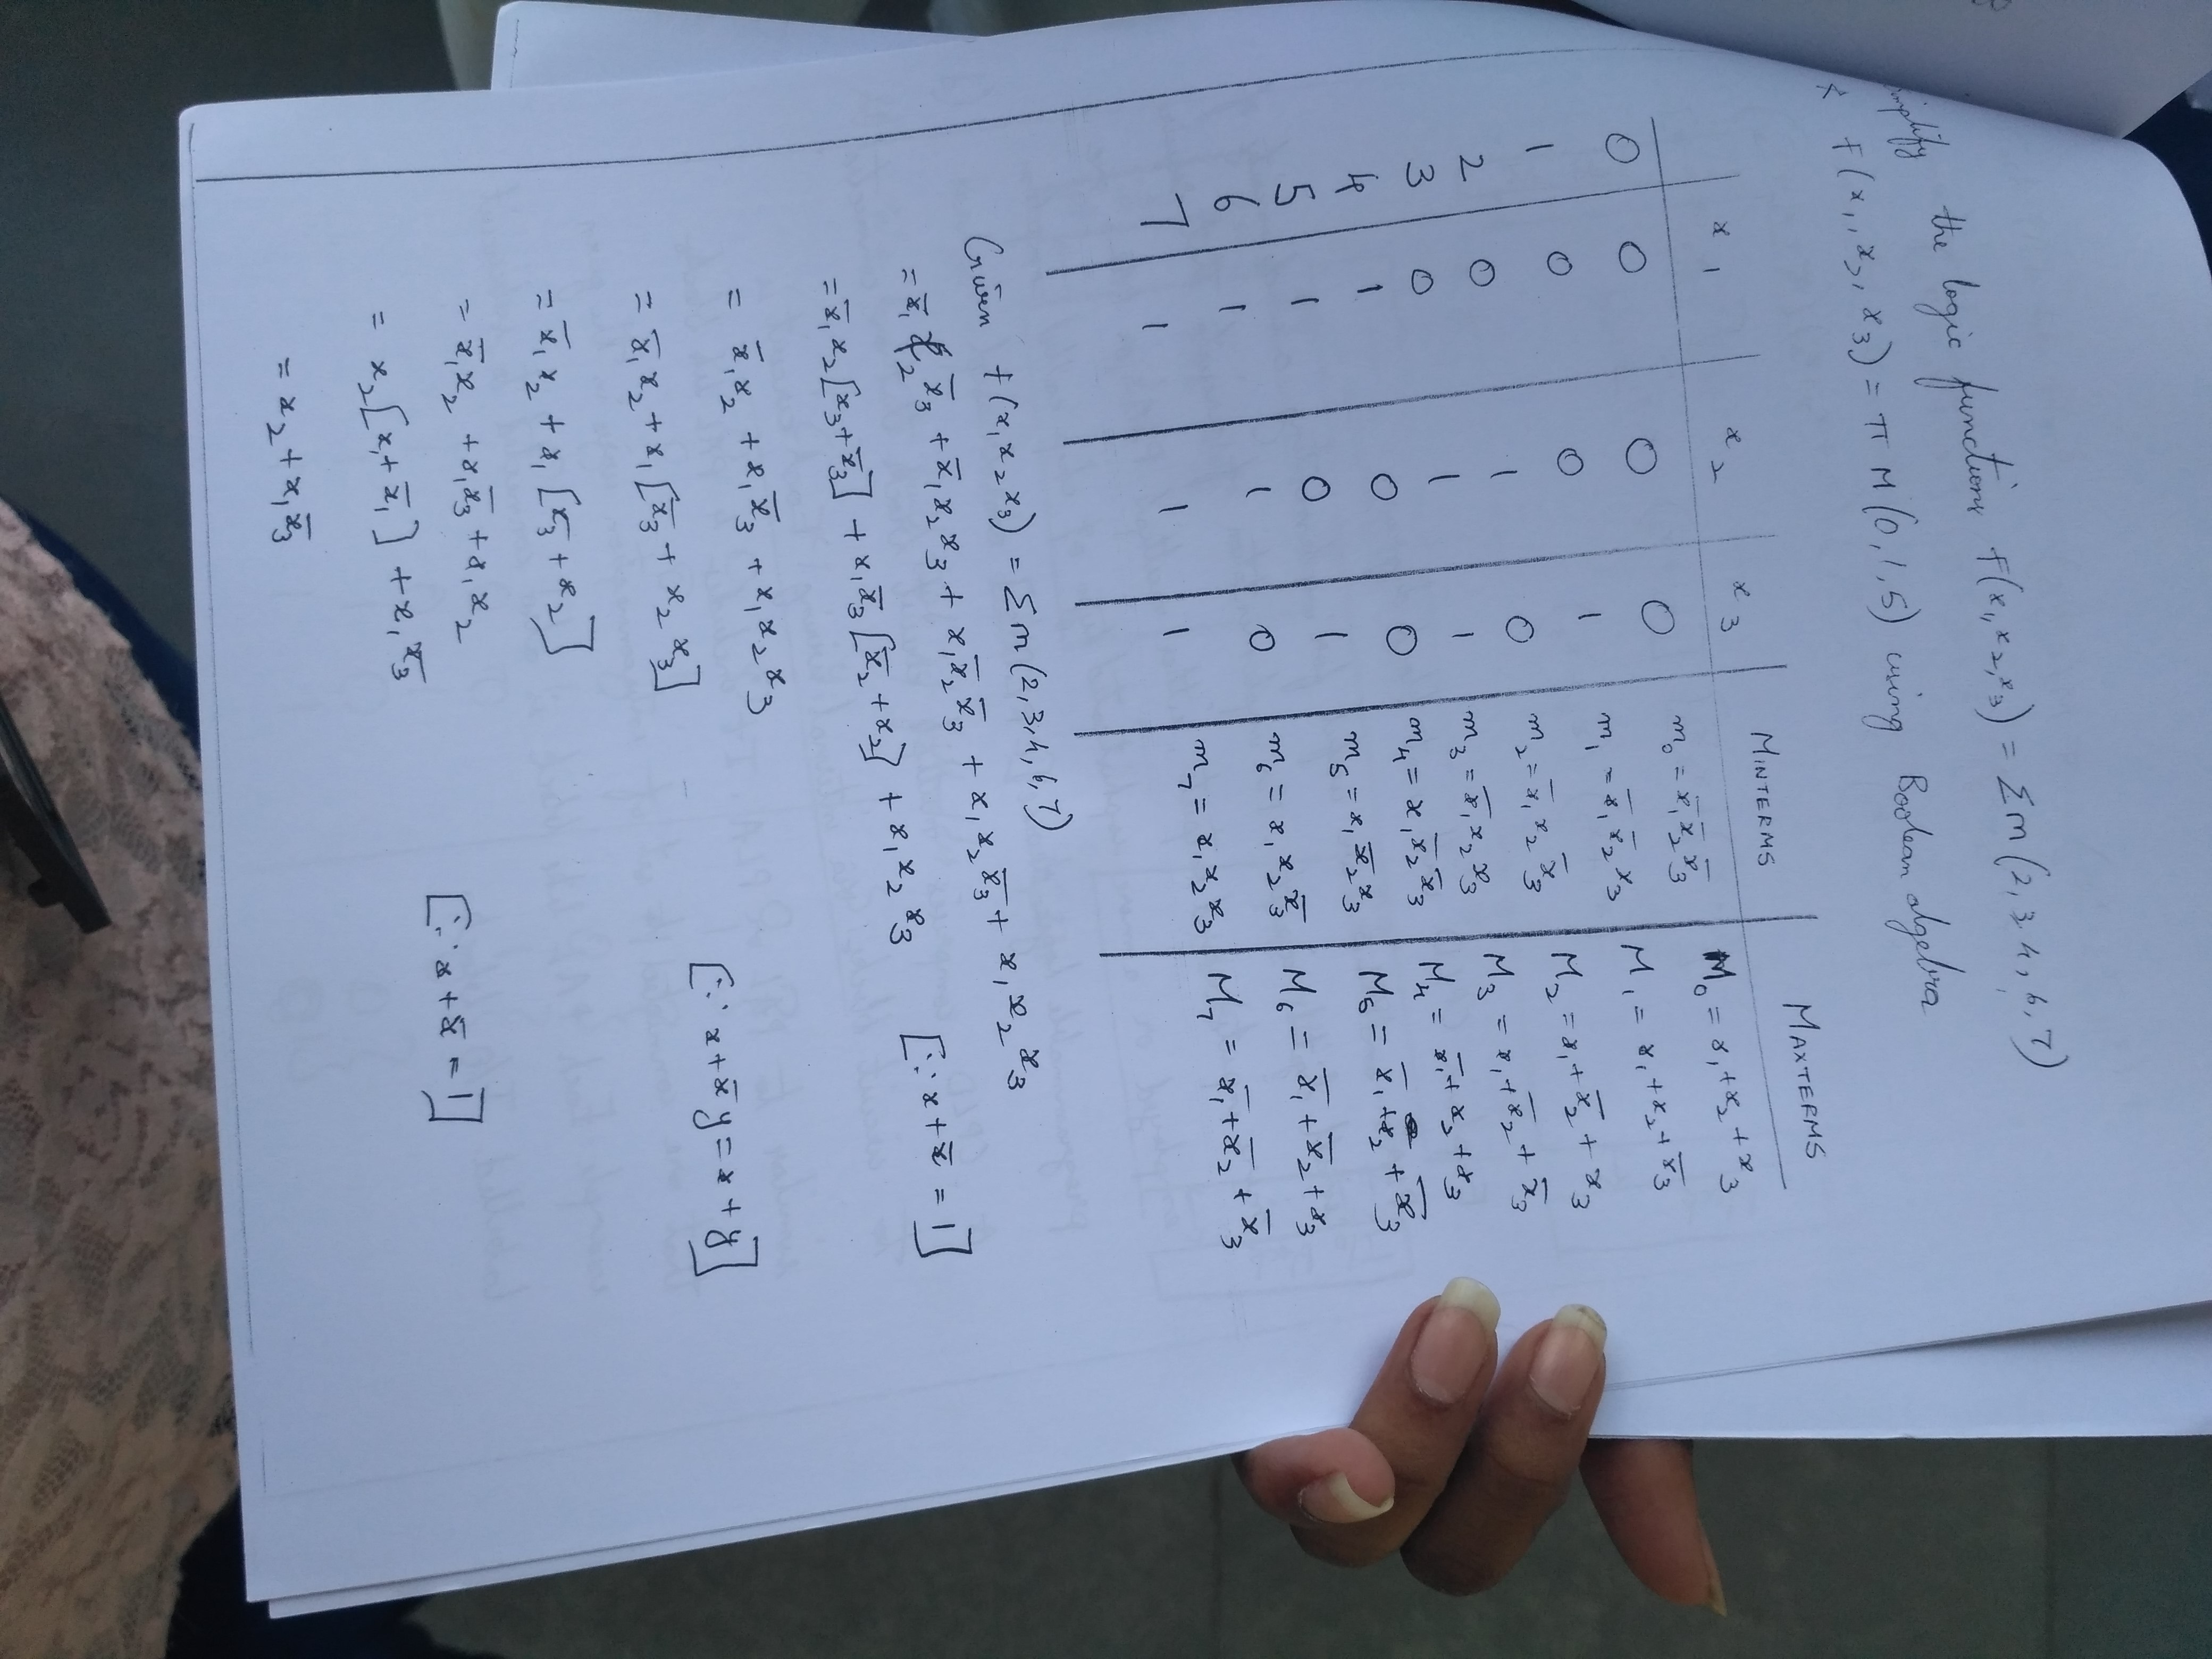 the logic function f(x₁,x₂,x₃) = Σm(2,3,4,6,7)
& f(x₁,x₂,x₃) = π M(0,1,5) using Boolean algebra
x₁ x₂ x₃ MINTERMS MAXTERMS
0 0 0 0 m₀ = x̅₁x̅₂x̅₃ M₀ = x₁+x₂+x₃
1 0 0 1 m₁ = x̅₁x̅₂x₃ M₁ = x₁+x₂+x̅₃
2 0 1 0 m₂ = x̅₁x₂x̅₃ M₂ = x₁+x̅₂+x₃
3 0 1 1 m₃ = x̅₁x₂x₃ M₃ = x₁+x̅₂+x̅₃
4 1 0 0 m₄ = x₁x̅₂x̅₃ M₄ = x̅₁+x₂+x₃
5 1 0 1 m₅ = x₁x̅₂x₃ M₅ = x̅₁+x₂+x̅₃
6 1 1 0 m₆ = x₁x₂x̅₃ M₆ = x̅₁+x̅₂+x₃
7 1 1 1 m₇ = x₁x₂x₃ M₇ = x̅₁+x̅₂+x̅₃
Given f(x₁x₂x₃) = Σm(2,3,4,6,7)
= x̅₁x₂x̅₃ + x̅₁x₂x₃ + x₁x̅₂x̅₃ + x₁x₂x̅₃ + x₁x₂x₃
= x̅₁x₂[x₃+x̅₃] + x₁x̅₃[x̅₂+x₂] + x₁x₂x₃ [∵ x+x̅ = 1]
= x̅₁x₂ + x₁x̅₃ + x₁x₂x₃
= x̅₁x₂ + x₁[x̅₃ + x₂x₃] [∵ x+x̅y = x+y]
= x̅₁x₂ + x₁[x̅₃ + x₂]
= x̅₁x₂ + x₁x̅₃ + x₁x₂
= x₂[x₁+x̅₁] + x₁x̅₃ [∵ x+x̅ = 1]
= x₂+x₁x̅₃